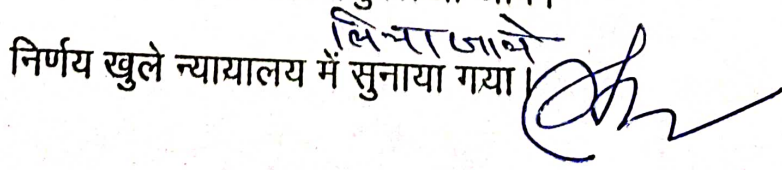 लिया जावे
निर्णय खुले न्यायालय में सुनाया गया।